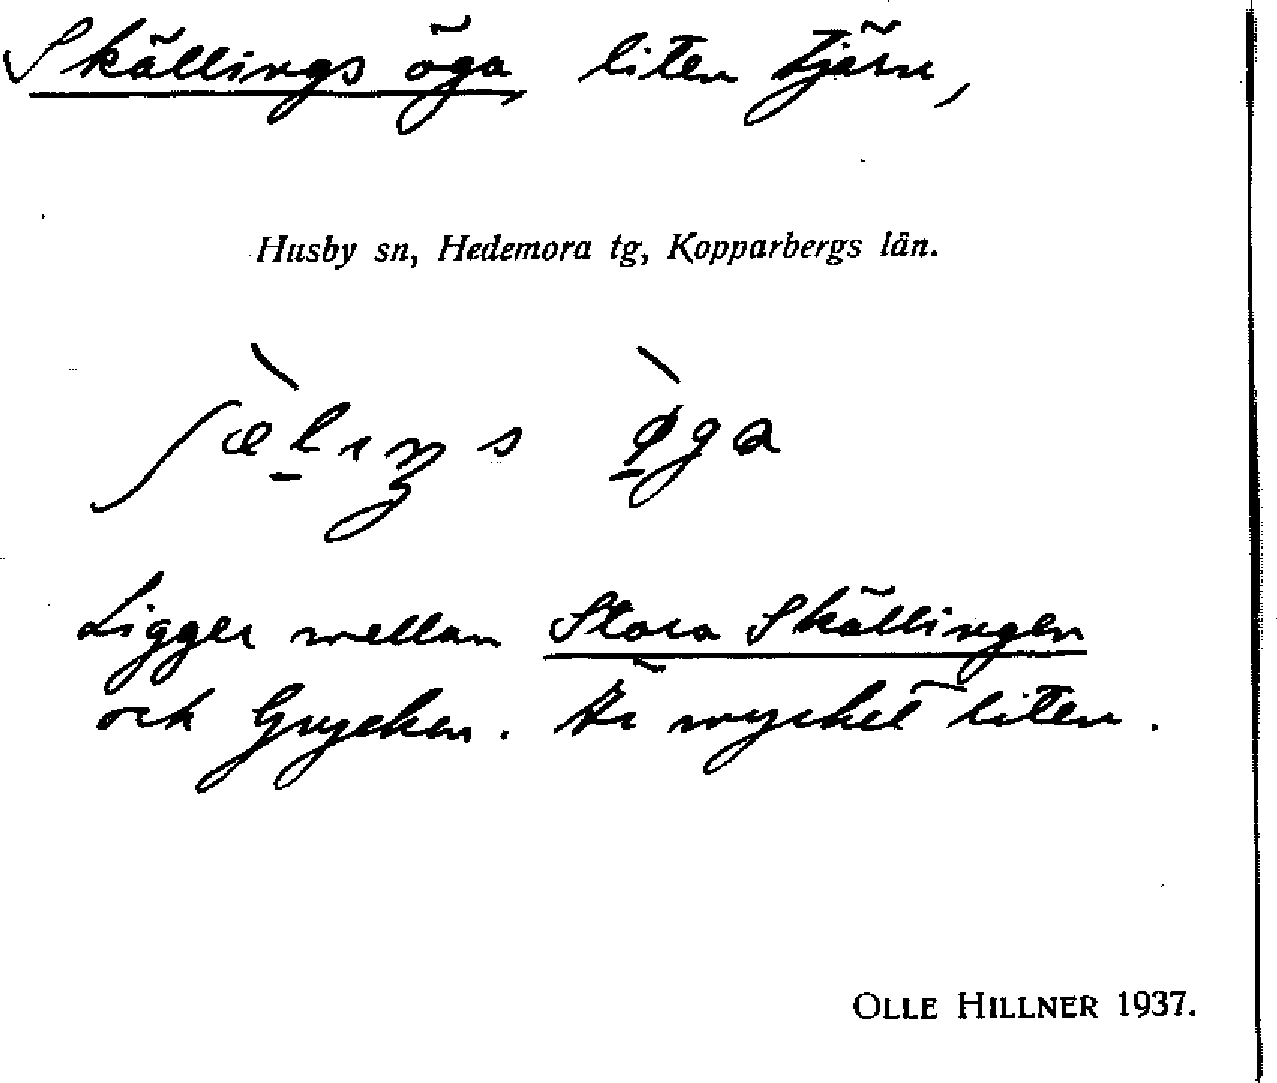 Skällings öga, liten tjärn,
Husby sn, Hedemora tg, Kopparbergs län.
ʃæ̀l̠ıŋs ø̠̀ga
Ligger mellan Stora Skällingen
och Grycken. Är mycket liten.
OLLE HILLNER 1937.